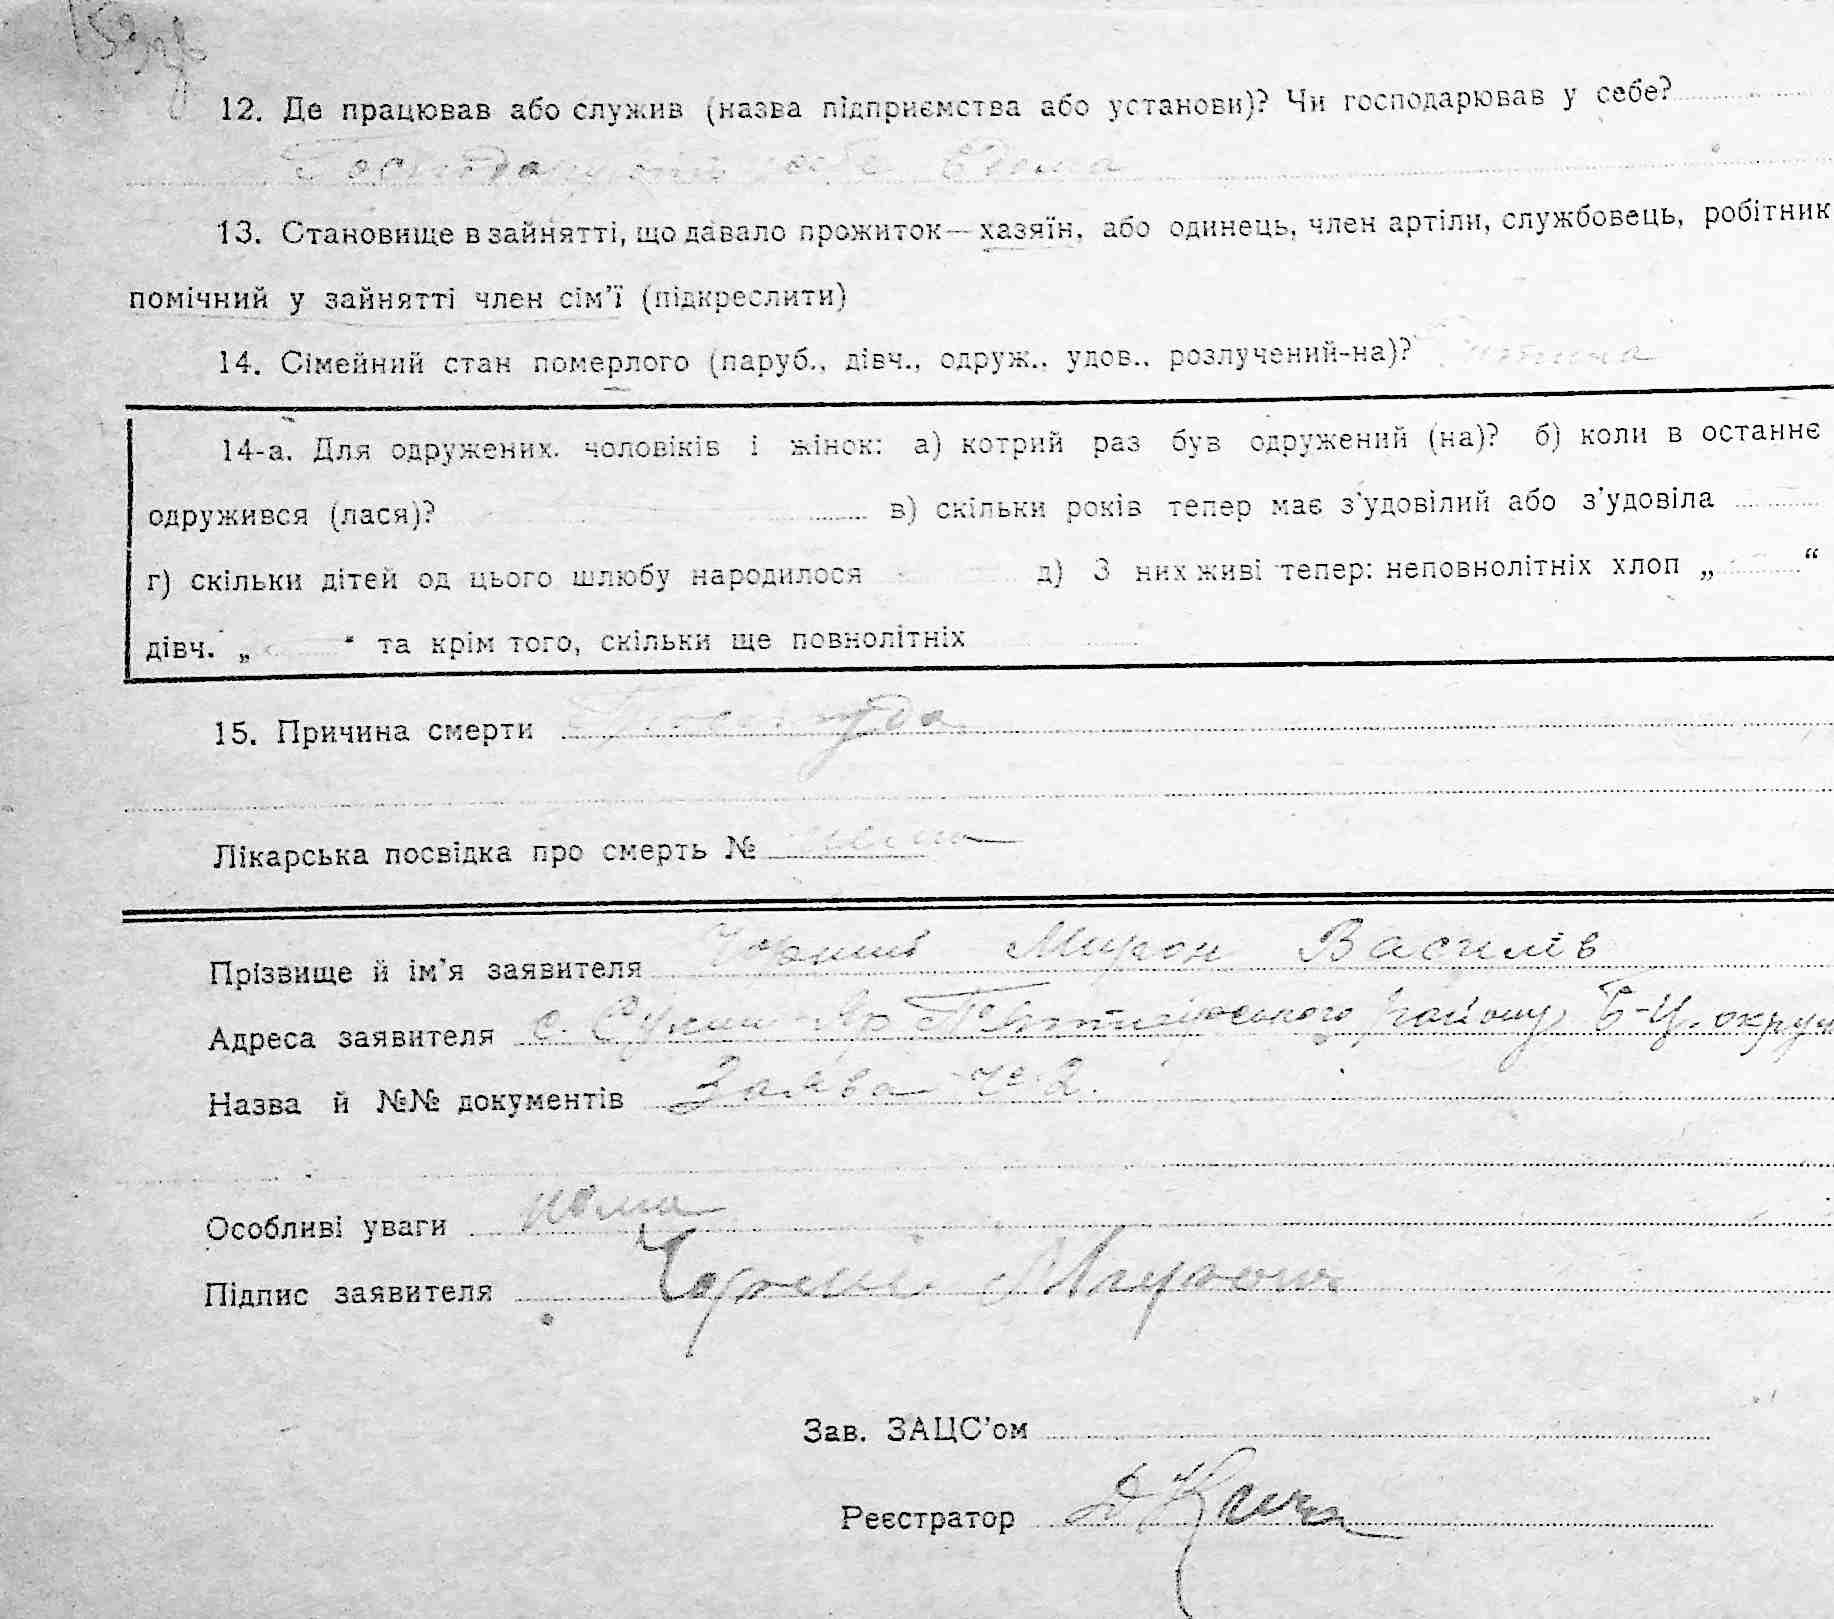 12. Де працював або служив (назва підприємства або установи)? Чи господарював у себе?
у себе вдома
13. Становище в зайнятті, що давало прожиток — хазяїн, або одинець, член артіли, службовець, робітник
помічний у зайнятті член сім’ї (підкреслити)
14. Сімейний стан померлого (паруб., дівч., одруж., удов., розлучений-на)?
14-а. Для одружених. чоловіків і жінок: а) котрий раз був одружений (на)? б) коли в останнє
одружився (лася)? в) скільки років тепер має з’удовілий або з’удовіла
г) скільки дітей од цього шлюбу народилося д) З них живі тепер: неповнолітніх хлоп „ “
дівч. „ “ та крім того, скільки ще повнолітніх
15. Причина смерти
Лікарська посвідка про смерть № нема
Прізвище й ім’я заявителя Чорний Мирон Василів
Адреса заявителя с. Сухий-Яр району Б-Ц. округи
Назва й №№ документів Заява № 2.
Особливі уваги нема
Підпис заявителя Чорний Мирон
Зав. ЗАЦС’ом
Реєстратор